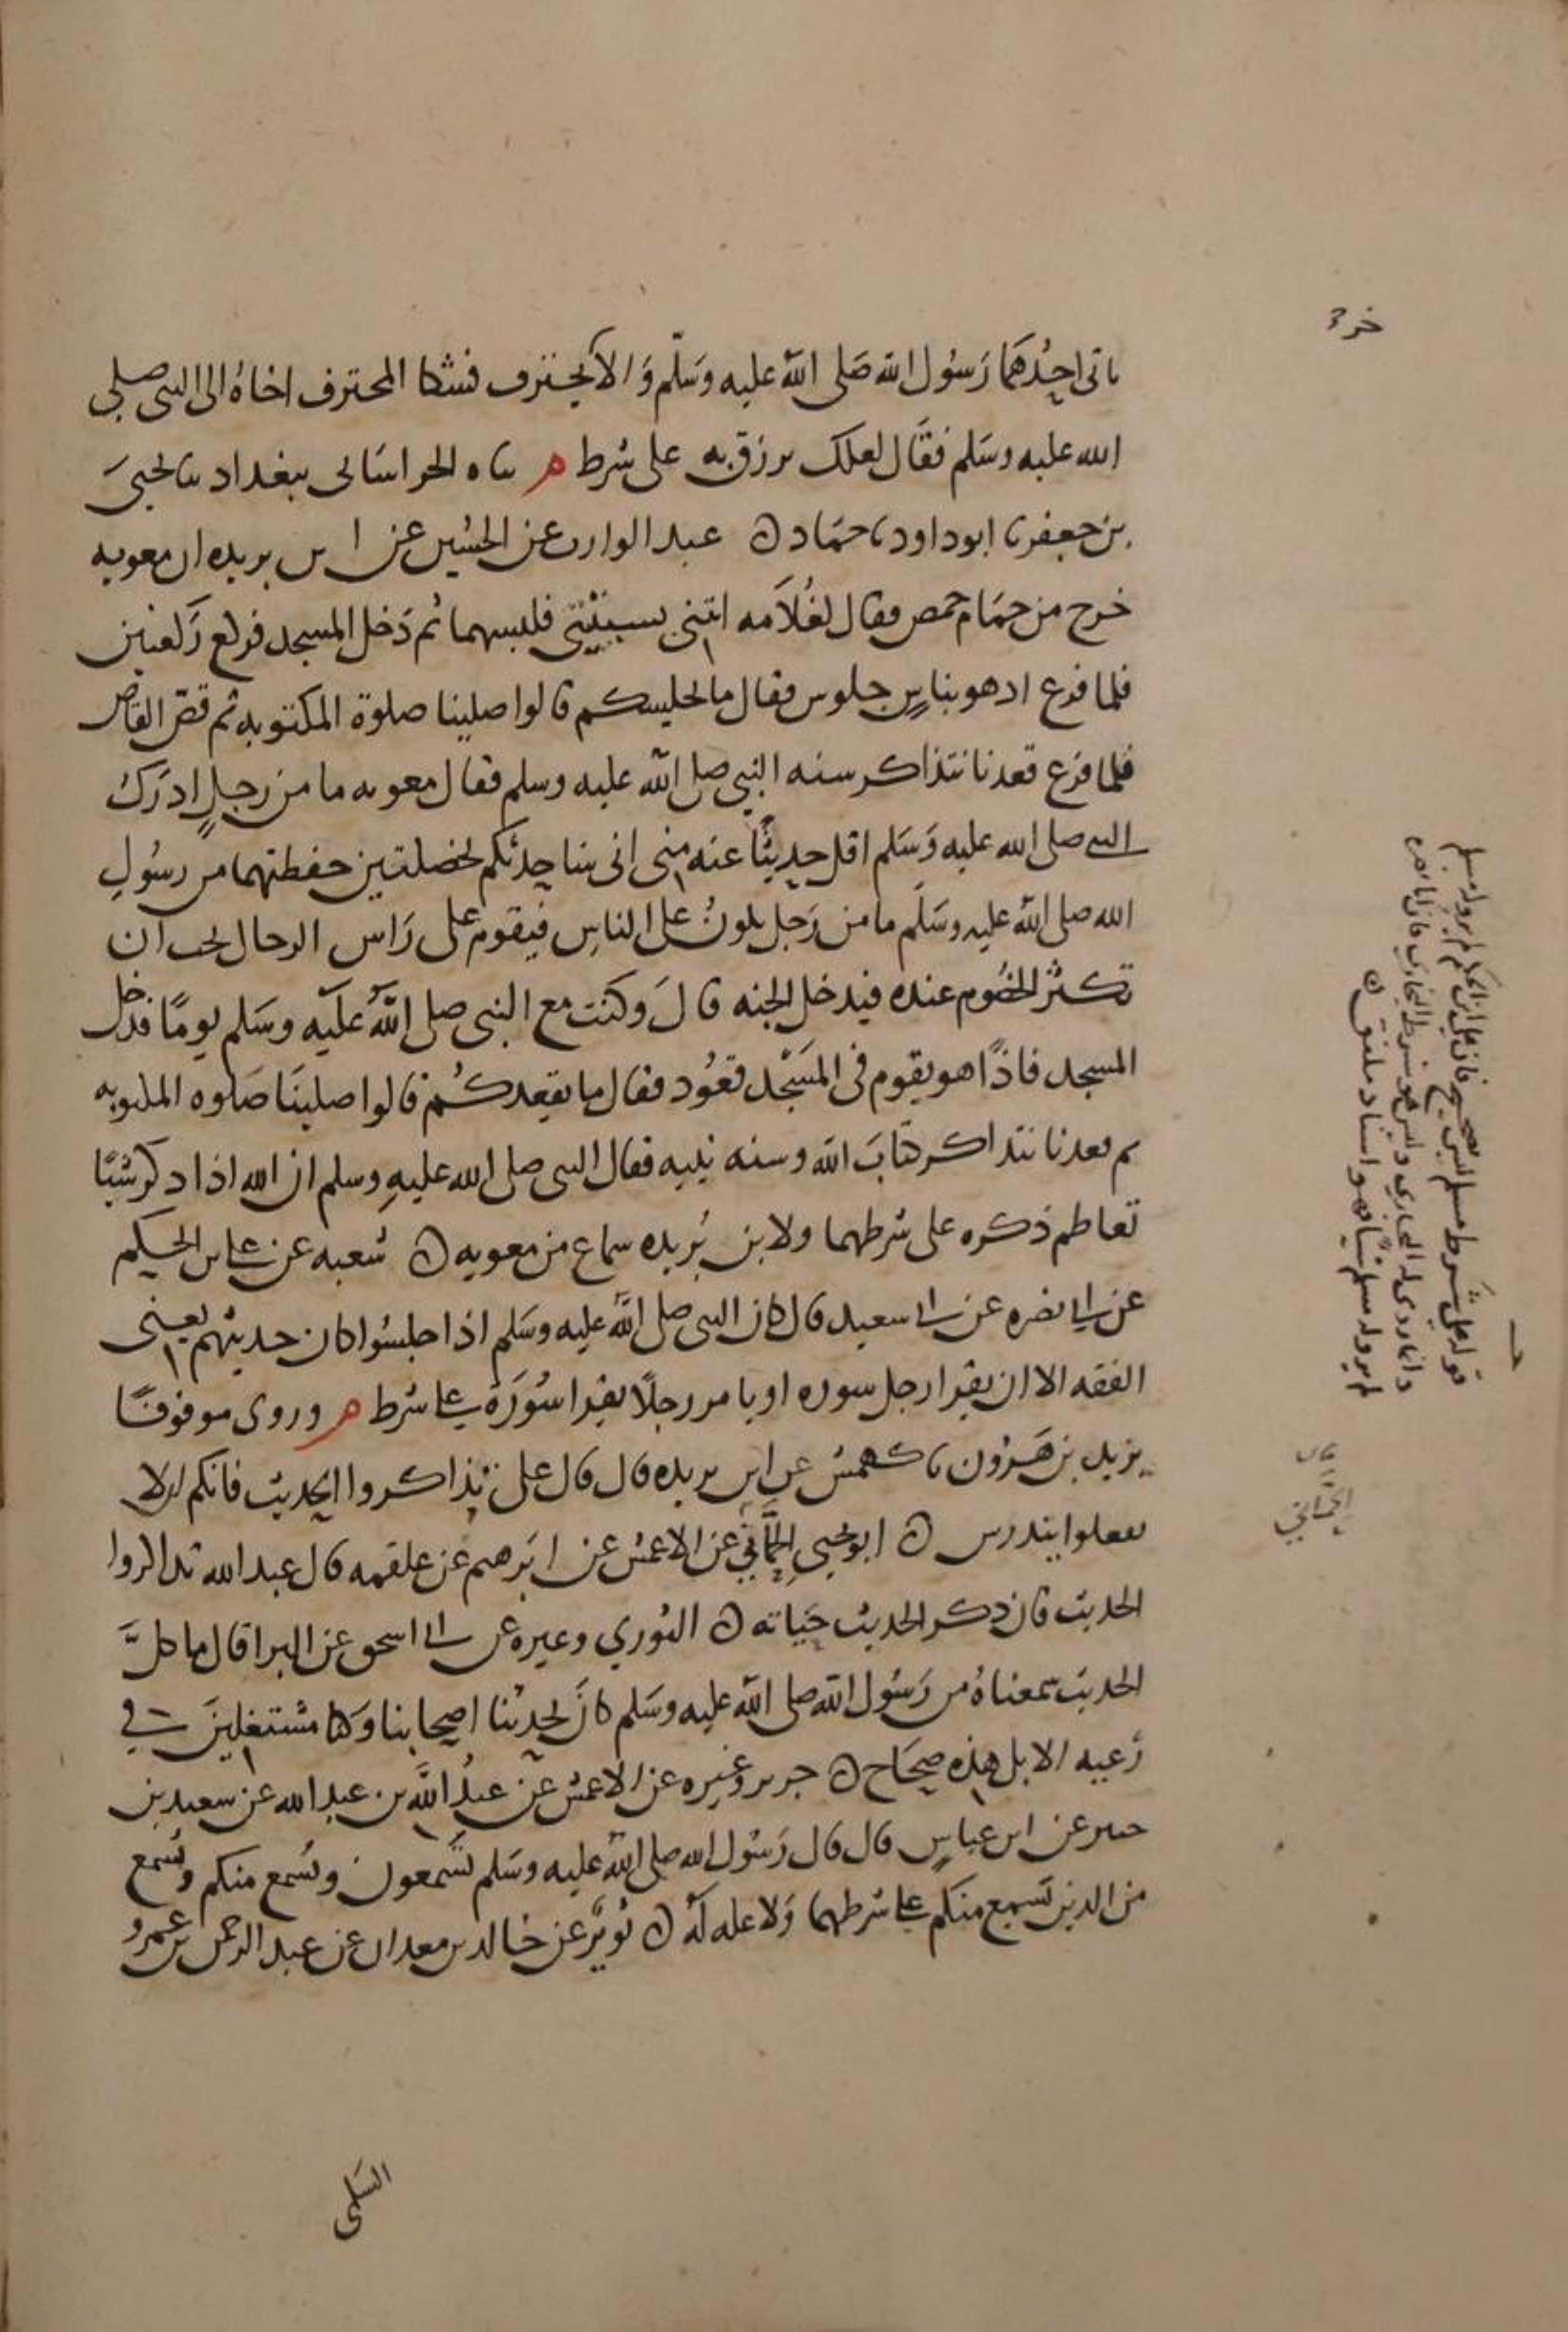 ياتي احدهما رسول الله صلى الله عليه وسلم والآخر يحترف فشكا المحترف اخاه الى النبي صلى
الله عليه وسلم فقال لعلك ترزق به على شرط م ثناه الخراساني ببغداد ثنا يحيى
بن جعفر نا ابو داود نا حماد ن عبد الوارث عن الحسين عن ابن بريده ان معويه
خرج من حمام حمص فقال لغلامه ائتني بسبتيتي فلبسهما ثم دخل المسجد فركع ركعتين
فلما فرغ اذ هو بناس جلوس فقال ما يجلسكم قالوا صلينا صلوة المكتوبه ثم قص القاص
فلما فرغ قعدنا نتذاكر سنه النبي صلى الله عليه وسلم فقال معويه ما من رجل ادرك
النبي صلى الله عليه وسلم اقل حديثا عنه مني اني ساحدثكم بخصلتين حفظتهما من رسول
الله صلى الله عليه وسلم ما من رجل يكون على الناس فيقوم على راس الرجال يحب ان
تكثر الخصوم عنده فيدخل الجنه قال وكنت مع النبي صلى الله عليه وسلم يوما فدخل
المسجد فاذا هو بقوم في المسجد قعود فقال ما يقعدكم قالوا صلينا صلوه المكتوبه
ثم قعدنا نتذاكر كتاب الله وسنه نبيه فقال النبي صلى الله عليه وسلم ان الله اذا ذكر شيئا
تعاظم ذكره على شرطهما ولابن بريده سماع من معويه ن شعبه عن علي بن الحكم
عن ابي نضره عن ابي سعيد قال كان النبي صلى الله عليه وسلم اذا جلسوا كان حديثهم يعني
الفقه الا ان يقرا رجل سوره او يامر رجلا يقرا سورة على شرط م وروي موقوفا
يزيد بن هرون نا كهمس عن ابن بريده قال قال علي تذاكروا الحديث فانكم الا
تفعلوا يندرس ن ابو يحيى الحماني عن الاعمش عن ابرهيم عن علقمه قال عبد الله تذاكروا
الحديث فان ذكر الحديث حياته ن الثوري وغيره عن ابي اسحق عن البرا قال ما كل
الحديث سمعناه من رسول الله صلى الله عليه وسلم كان يحدثنا اصحابنا وكنا مشتغلين في
رعيه الابل هذه صحاح ن جرير وغيره عن الاعمش عن عبد الله بن عبد الله عن سعيد بن
جبير عن ابن عباس قال قال رسول الله صلى الله عليه وسلم تسمعون ويسمع منكم ويسمع
من الذين يسمع منكم على شرطهما ولا عله له ن ثور عن خالد بن معدان عن عبد الرحمن بن عمرو
السلمي
قوله على شرط مسلم ليس بصحيح فان علي بن الحكم لم يرو له مسلم
الحماني